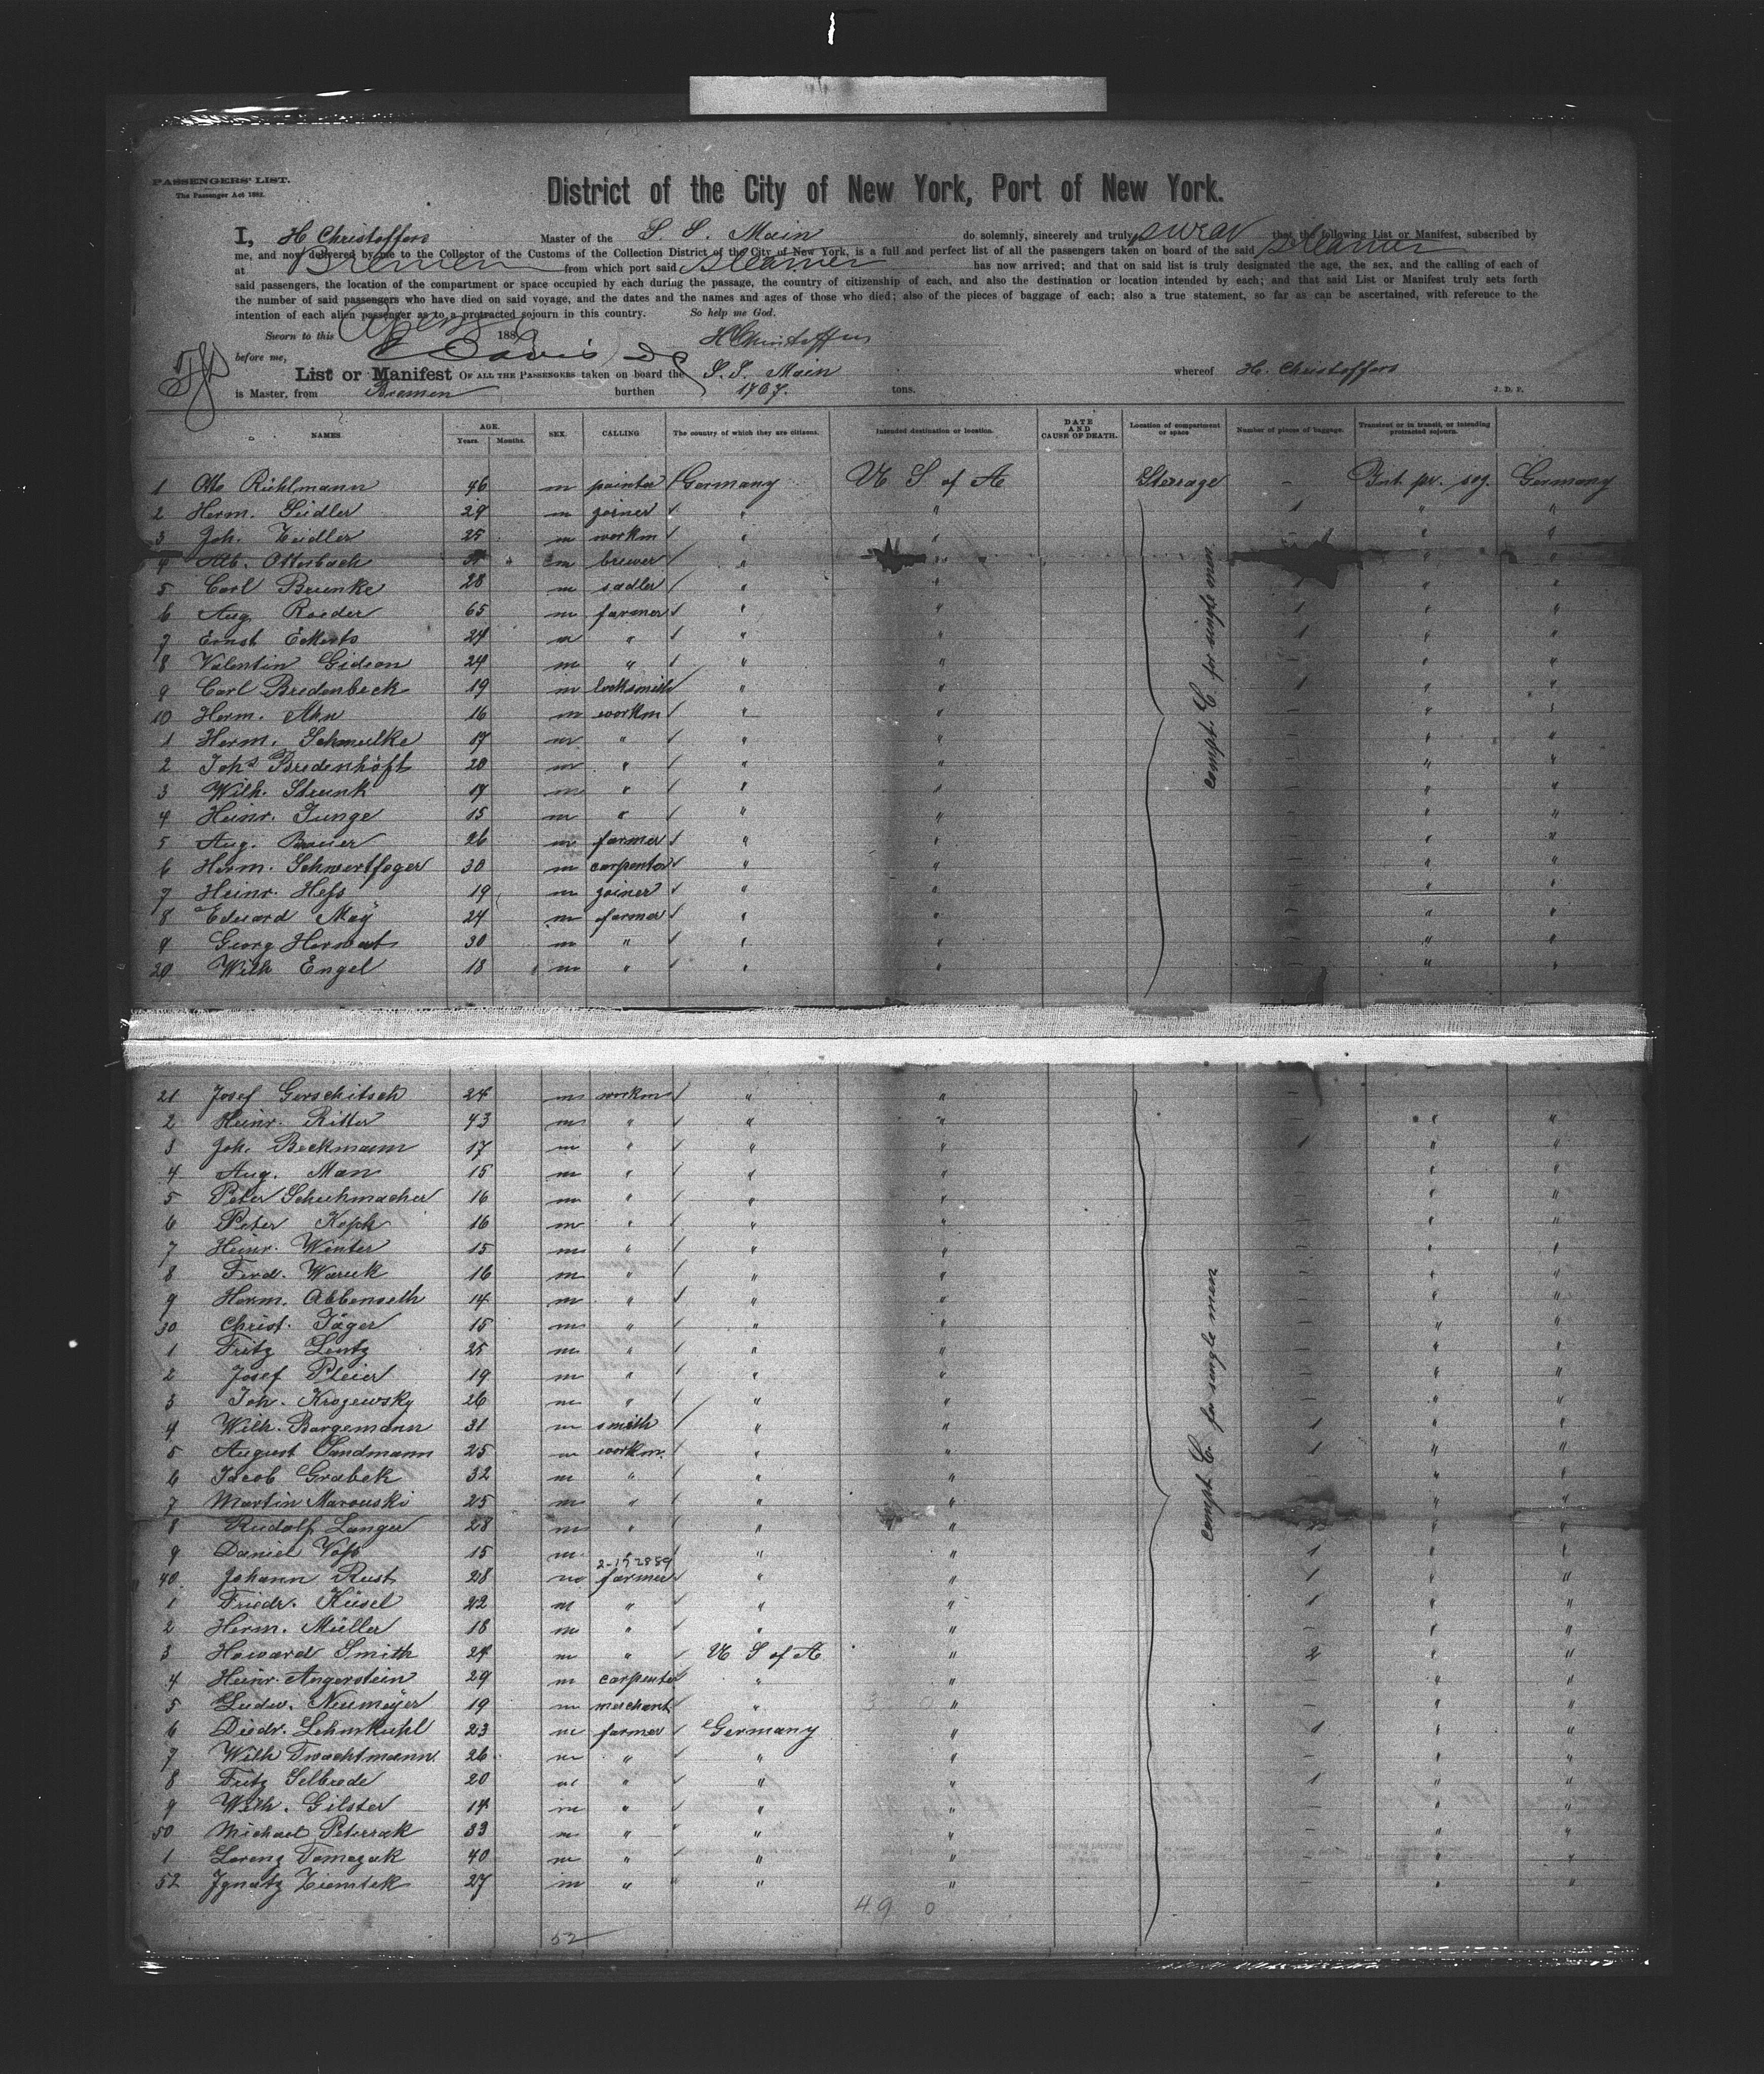 PASSENGERS' LIST.
The Passenger Act 1882.
District of the City of New York, Port of New York.
I, H Christoffers Master of the S. S. Main do solemnly, sincerely and truly swear that the following List or Manifest, subscribed by
me, and now delivered by me to the Collector of the Customs of the Collection District of the City of New York, is a full and perfect list of all the passengers taken on board of the said steamer
at Bremen from which port said steamer has now arrived; and that on said list is truly designated the age, the sex, and the calling of each of
said passengers, the location of the compartment or space occupied by each during the passage, the country of citizenship of each, and also the destination or location intended by each; and that said List or Manifest truly sets forth
the number of said passengers who have died on said voyage, and the dates and the names and ages of those who died; also of the pieces of baggage of each; also a true statement, so far as can be ascertained, with reference to the
intention of each alien passenger as to a protracted sojourn in this country. So help me God.
Sworn to this 188 H Christoffers
before me, Davis
List or Manifest OF ALL THE PASSENGERS taken on board the S. S. Main whereof H. Christoffers
is Master, from Bremen burthen 1707. tons. J. D. P.
NAMES AGE. Years. Months. SEX. CALLING The country of which they are citizens. Intended destination or location. DATE AND CAUSE OF DEATH. Location of compartment or space Number of pieces of baggage. Transient or in transit, or intending protracted sojourn.
1 Otto Rühlmann 46 m painter Germany U S of A Sterrage - Int. pr. soj. Germany
2 Herm. Seidler 29 m joiner " " 1 " "
3 Joh. Zeidler 25 m workm " " - " "
4 Alb. Ottersbach m brewer " " " "
5 Carl Brunke 28 m sadler " " 1 " "
6 Aug. Roeder 65 m farmer " " 1 " "
7 Ernst Eckerts 24 m " " " 1 " "
8 Valentin Gideon 24 m " " " - " "
9 Carl Bredenbeck 19 m locksmith " " 1 " "
10 Herm. Ahn 16 m workm " " - " "
1 Herm. Schmulke 17 m " " " - " "
2 Johs Bredenhöft 20 m " " " - " "
3 Wilh. Strunk 17 m " " " - " "
4 Heinr. Junge 15 m " " " - " "
5 Aug. Bauer 26 m farmer " " - " "
6 Herm. Schwertfeger 30 m carpenter " " - " "
7 Heinr. Hess 19 m joiner " " - " "
8 Eduard May 24 m farmer " " - " "
9 Georg 30 m " " " - " "
20 Wilh Engel 18 m " " " - " "
compt. C. for single men.
21 Josef Gerschitsch 24 m workm " " -
2 Heinr. Ritter 43 m " " " - " "
3 Joh. Beckmann 17 m " " " 1 " "
4 Aug. Man 15 m " " " - " "
5 Peter Schuhmacher 16 m " " " - " "
6 Peter 16 m " " " - " "
7 Heinr. Winter 15 m " " " - " "
8 Ferd. 16 m " " " - " "
9 Herm. Abbenseth 14 m " " " - " "
30 Christ. Jäger 15 m " " " - " "
1 Fritz Lentz 25 m " " " - " "
2 Josef Pleier 19 m " " " - " "
3 Joh. Krozewsky 26 m " " " - " "
4 Wilh. Borgemann 31 m smith " " 1 " "
5 August Sandmann 25 m workm. " " 1 " "
6 Jacob Grabek 32 m " " " - " "
7 Martin Marouski 25 m " " " " "
8 Rudolf Langer 28 m " " " " "
9 Daniel Voss 15 m " " " 1 " "
2-172889
40 Johann Rust 28 m farmer " " 1 " "
1 Friedr. Küsel 22 m " " " 1 " "
2 Herm. Müller 18 m " " " - " "
3 Howard Smith 24 m " U S of A " 2 " "
4 Heinr. Angerstein 29 m carpenter " " - " "
5 Ludw. Neumeyer 19 m merchant " " - " "
6 Diedr. Lehmkuhl 23 m farmer Germany " 1 " "
7 Wilh Twachtmann 26 m " " " - " "
8 Fritz Selbrede 20 m " " " 1 " "
9 Wilh. Gilster 14 m " " " - " "
50 Michael Petersak 33 m " " " - " "
1 Lorenz Tomczak 40 m " " " - " "
52 Ignatz Ziemtek 27 m " " " - " "
compt C. for single men
49 0
52